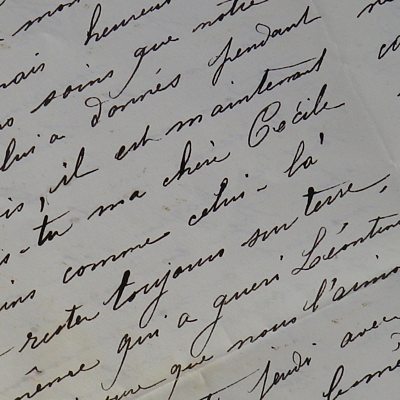 mon
mais heureux
soins que notre
lui a donnés pendant
is, il est maintenant
s-tu ma chère Cécile
ins comme celui-là
rester toujours sur terre,
même qui a guéri Léontine
que nous l'aimions
jeudi avec